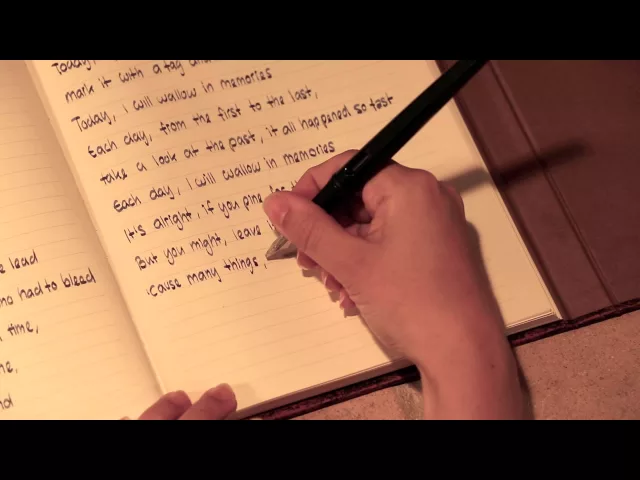 e lead
ho had to bleed
time,
me,
nd
Today,
mark it with a tag and
Today, I will wallow in memories
Each day, from the first to the last,
take a look at the past, it all happened so fast
Each day, I will wallow in memories
It's alright, if you pine
But you might, leave
'Cause many things,